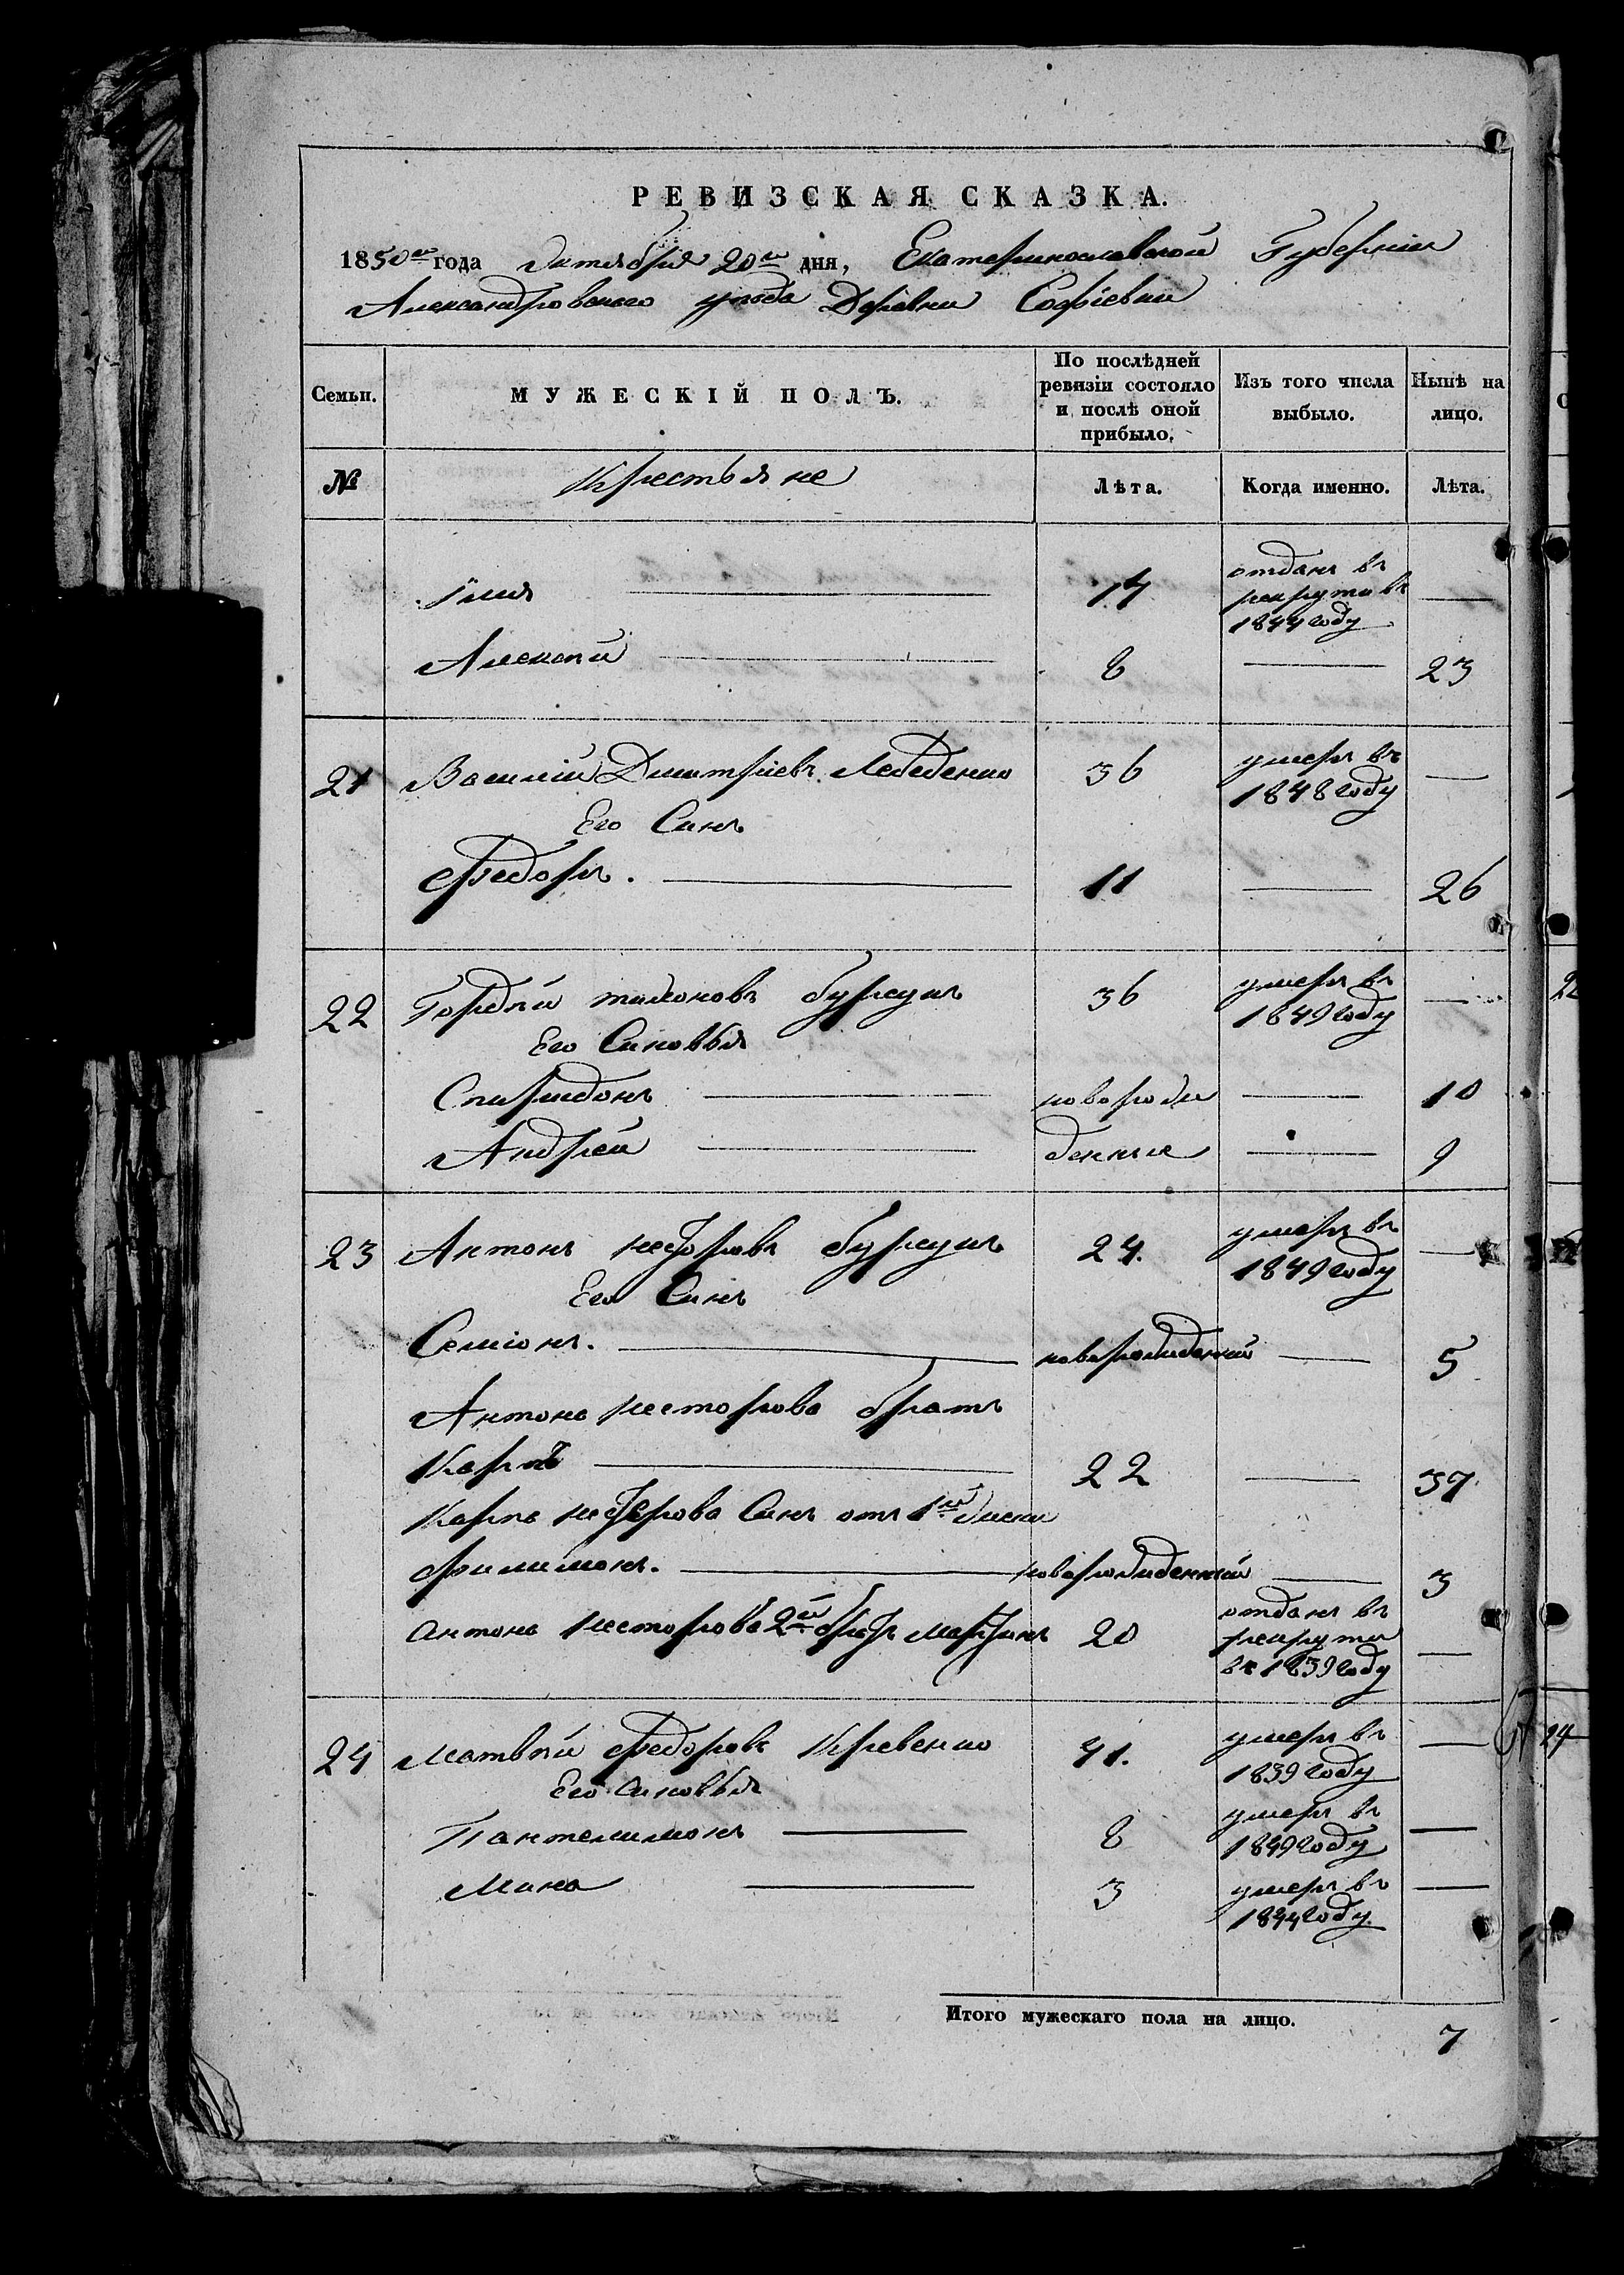 РЕВИЗСКАЯ СКАЗКА.
1850го года Октября 20го дня, Екатеринославской Губернии
Александровского уезда Деревни Софиевки
Семьи. МУЖЕСКІЙ ПОЛЪ. По послѣдней ревизіи состояло и послѣ оной прибыло. Изъ того числа выбыло. Нынѣ на лицо.
№ Крестьяне Лѣта. Когда именно. Лѣта.
Илия отданъ въ рекруты въ 1844 году —
Алексѣй — 8 — 23
21 Василій Дмитріевъ Лебеденко 36 умеръ въ 1848 году —
Его Синъ
Федоръ. — 11 — 26
22 Гордѣй 36 умеръ въ 1849 году —
Его Синовья
Спиридонъ — новорож — 10
Андрей — денные — 9
23 Антонъ Несторовъ 24. умеръ въ 1849 году —
Его Синъ
Семіонъ. — новорожденный — 5
Антона Несторова братъ
Карпъ — 22 — 37
Карпа Несторова Синъ отъ 1й жены
Филимонъ. — новорожденный — 3
Антона Несторова 2й братъ Мартинъ 20 отданъ въ рекруты въ 1839 году —
24 Матвѣй Федоровъ Кревенко 41. умеръ въ 1839 году —
Его синовья
Пантелимонъ — 8 умеръ въ 1849 году —
Мина — 3 умеръ въ 1844 году. —
Итого мужескаго пола на лицо. 7
24